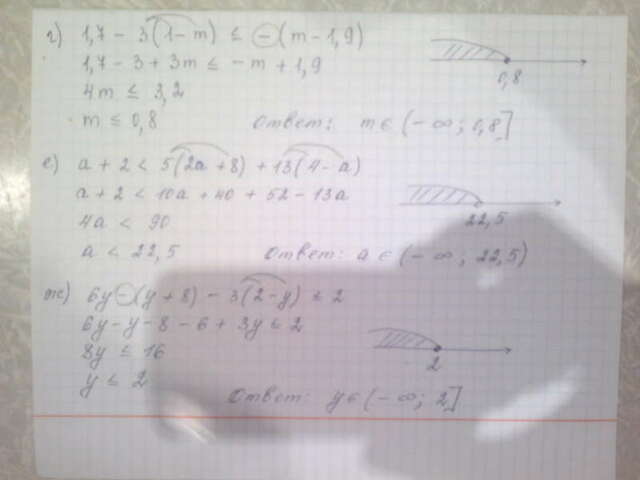 г) 1,7 - 3(1 - m) ≤ -(m - 1,9)
1,7 - 3 + 3m ≤ -m + 1,9
4m ≤ 3,2
m ≤ 0,8
0,8
Ответ: m ∈ (-∞; 0,8]
е) a + 2 < 5(2a + 8) + 13(4 - a)
a + 2 < 10a + 40 + 52 - 13a
4a < 90
a < 22,5
22,5
Ответ: a ∈ (-∞; 22,5)
ж) 6y - (y + 8) - 3(2 - y) ≤ 2
6y - y - 8 - 6 + 3y ≤ 2
8y ≤ 16
y ≤ 2
2
Ответ: y ∈ (-∞; 2]